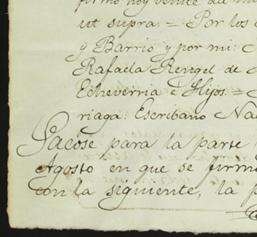 firmo hoy veinte de
ut supra = Por los
y Barrio, y por mi:
Rafaela Rengel de
Echeverria é Hijos =
riaga: Escribano Na
Sacóse para la parte
Agosto en que se firmó
con la siguiente, la p